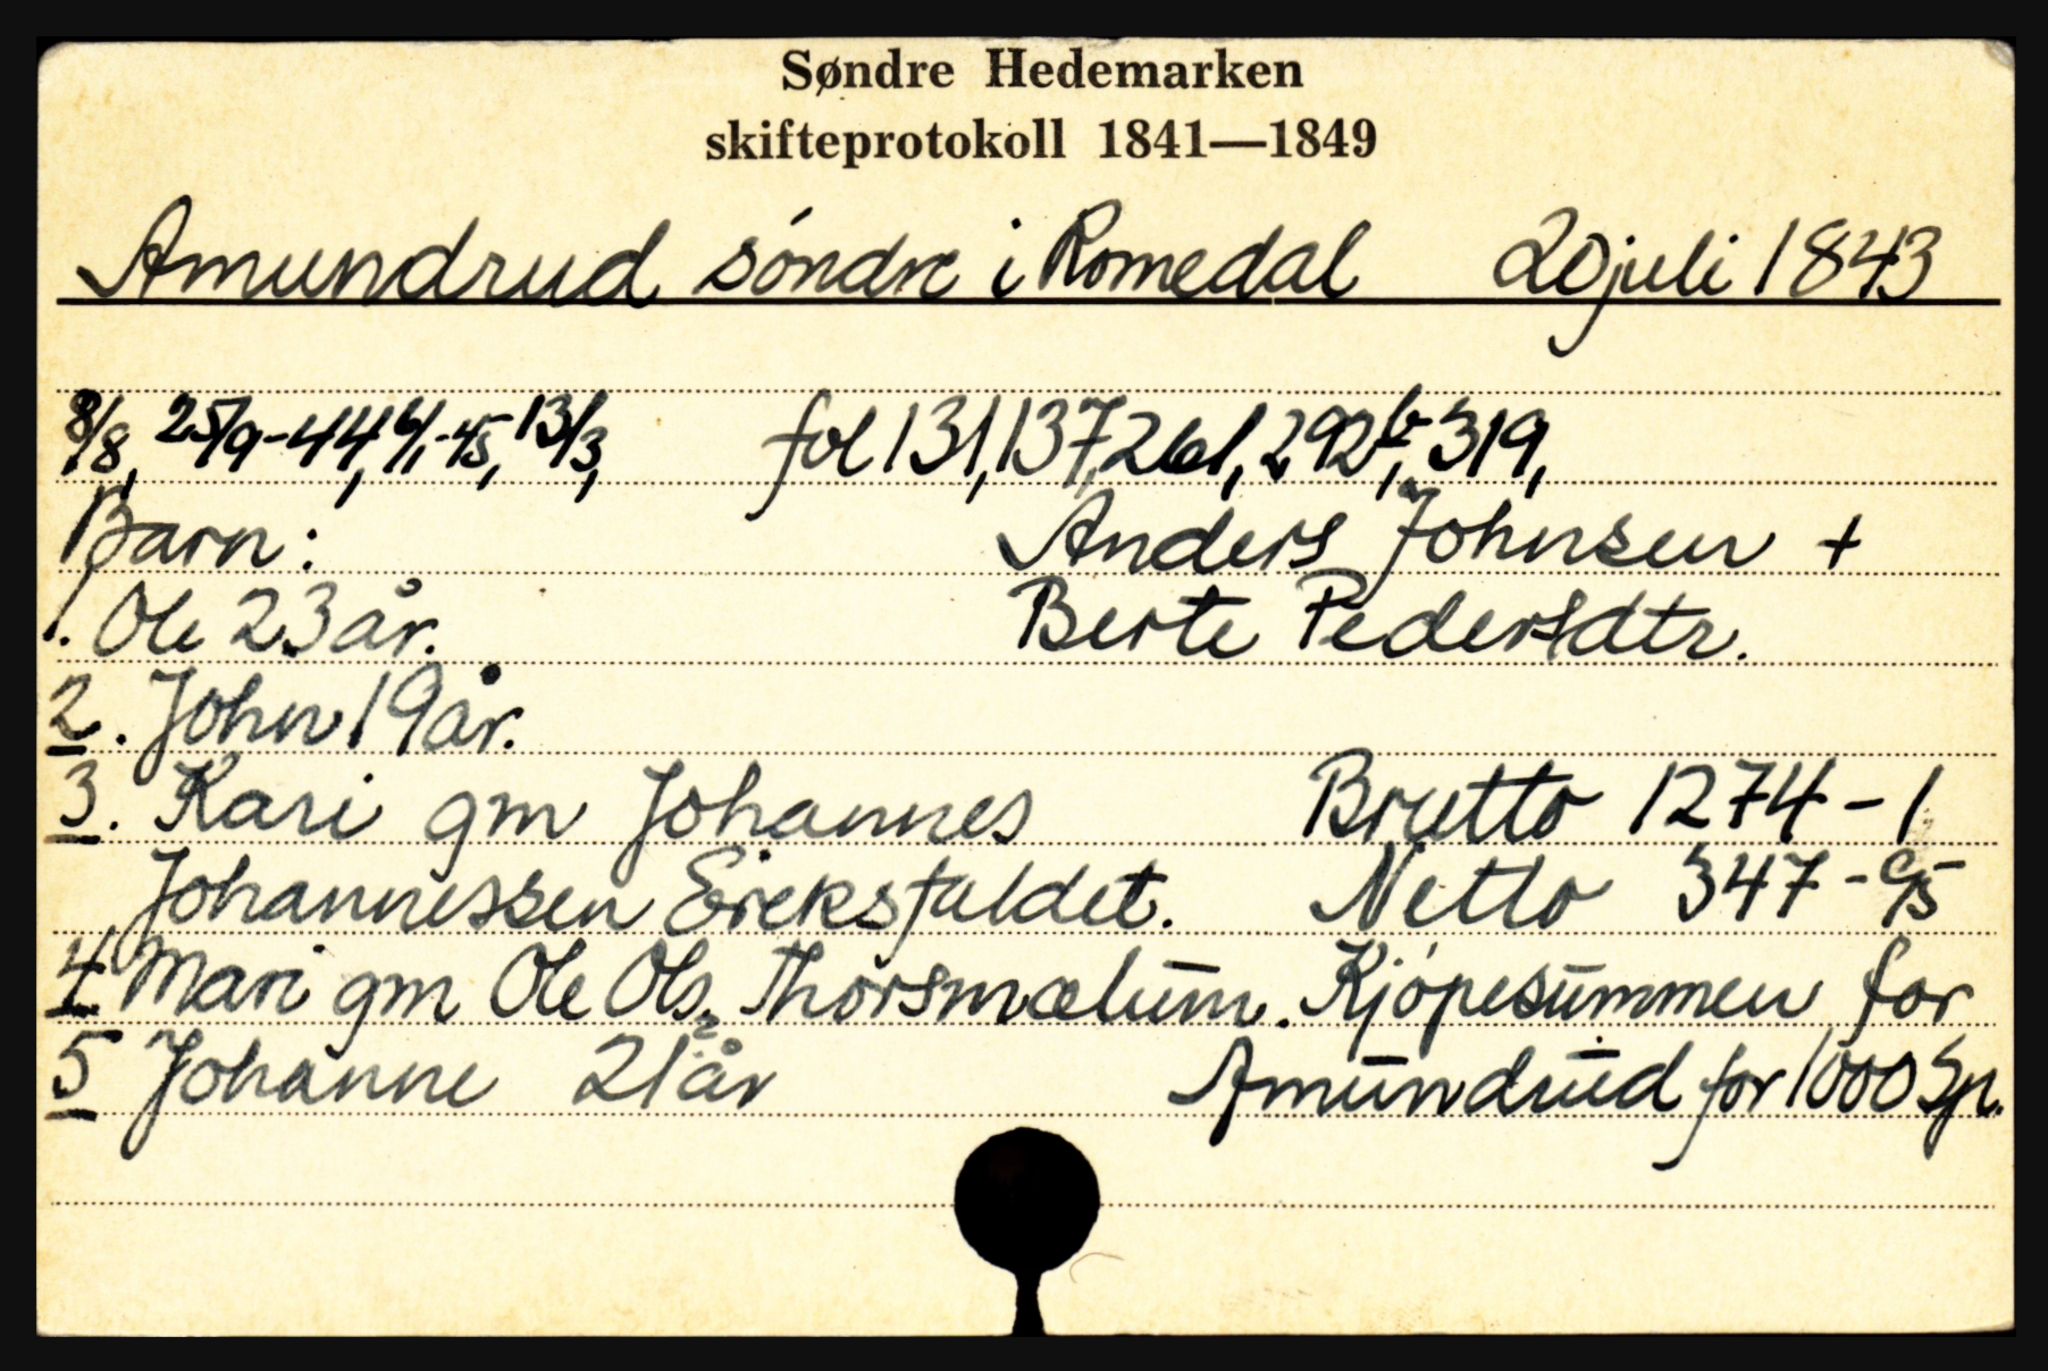 Søndre Hedemarken
skifteprotokoll 1841—1849
Amundrud søndre i Romedal 20 juli 1843
8/8, 25/9-44, 6/1-45, 13/3, fol 131, 137, 261, 292b, 319,
Barn: Anders Johnsen +
1. Ole 23 år. Berte Pedersdtr.
2. John 19 år.
3. Kari gm Johannes Brutto 1274-1
Johannessen Ereksfaldet. Netto 347-95
4 Mari gm Ole Ols. Thorsmælum. Kjøpesummen for
5 Johanne 21 år Amundrud for 1000 Sp.